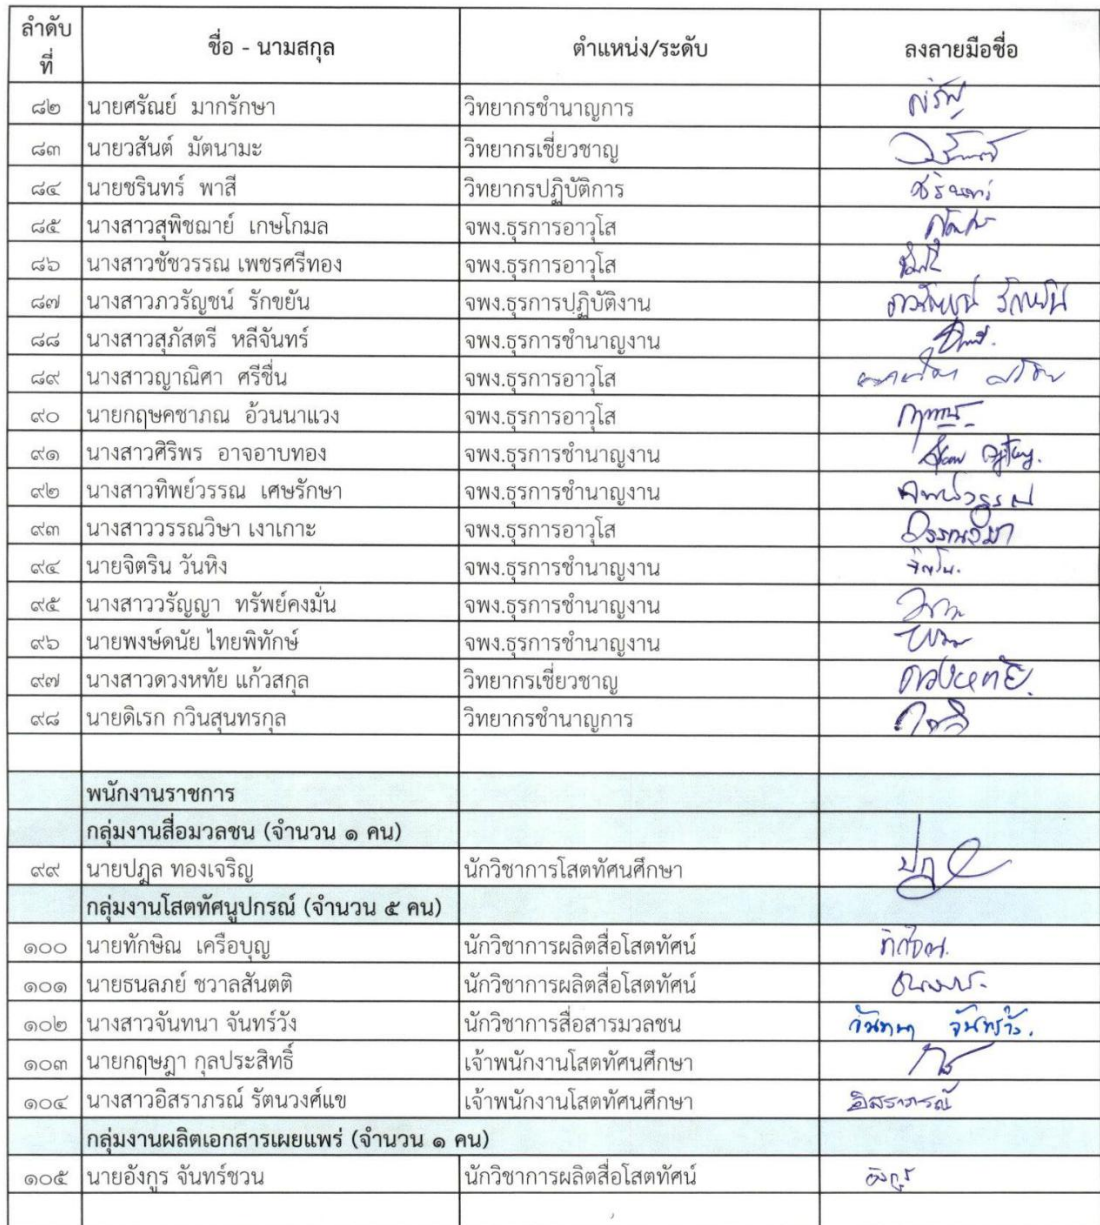 ลำดับที่ ชื่อ - นามสกุล ตำแหน่ง/ระดับ ลงลายมือชื่อ
๘๒ นายศรัณย์ มากรักษา วิทยากรชำนาญการ
๘๓ นายวสันต์ มัตนามะ วิทยากรเชี่ยวชาญ
๘๔ นายชรินทร์ พาสี วิทยากรปฏิบัติการ ชรินทร์
๘๕ นางสาวสุพิชฌาย์ เกษโกมล จพง.ธุรการอาวุโส
๘๖ นางสาวชัชวรรณ เพชรศรีทอง จพง.ธุรการอาวุโส
๘๗ นางสาวภวรัญชน์ รักขยัน จพง.ธุรการปฏิบัติงาน ภวรัญชน์ รักขยัน
๘๘ นางสาวสุภัสตรี หลีจันทร์ จพง.ธุรการชำนาญงาน
๘๙ นางสาวญาณิศา ศรีชื่น จพง.ธุรการอาวุโส
๙๐ นายกฤษคชาภณ อ้วนนาแวง จพง.ธุรการอาวุโส
๙๑ นางสาวศิริพร อาจอาบทอง จพง.ธุรการชำนาญงาน
๙๒ นางสาวทิพย์วรรณ เศษรักษา จพง.ธุรการชำนาญงาน ทิพย์วรรณ
๙๓ นางสาววรรณวิษา เงาเกาะ จพง.ธุรการอาวุโส วรรณวิษา
๙๔ นายจิตริน วันหิง จพง.ธุรการชำนาญงาน
๙๕ นางสาววรัญญา ทรัพย์คงมั่น จพง.ธุรการชำนาญงาน
๙๖ นายพงษ์ดนัย ไทยพิทักษ์ จพง.ธุรการชำนาญงาน
๙๗ นางสาวดวงหทัย แก้วสกุล วิทยากรเชี่ยวชาญ ดวงหทัย
๙๘ นายดิเรก กวินสุนทรกุล วิทยากรชำนาญการ
พนักงานราชการ
กลุ่มงานสื่อมวลชน (จำนวน ๑ คน)
๙๙ นายปภูล ทองเจริญ นักวิชาการโสตทัศนศึกษา
กลุ่มงานโสตทัศนูปกรณ์ (จำนวน ๕ คน)
๑๐๐ นายทักษิณ เครือบุญ นักวิชาการผลิตสื่อโสตทัศน์ ทักษิณ
๑๐๑ นายธนลภย์ ชวาลสันตติ นักวิชาการผลิตสื่อโสตทัศน์
๑๐๒ นางสาวจันทนา จันทร์วัง นักวิชาการสื่อสารมวลชน จันทนา จันทร์วัง
๑๐๓ นายกฤษฎา กุลประสิทธิ์ เจ้าพนักงานโสตทัศนศึกษา
๑๐๔ นางสาวอิสราภรณ์ รัตนวงศ์แข เจ้าพนักงานโสตทัศนศึกษา อิสราภรณ์
กลุ่มงานผลิตเอกสารเผยแพร่ (จำนวน ๑ คน)
๑๐๕ นายอังกูร จันทร์ชวน นักวิชาการผลิตสื่อโสตทัศน์ อังกูร